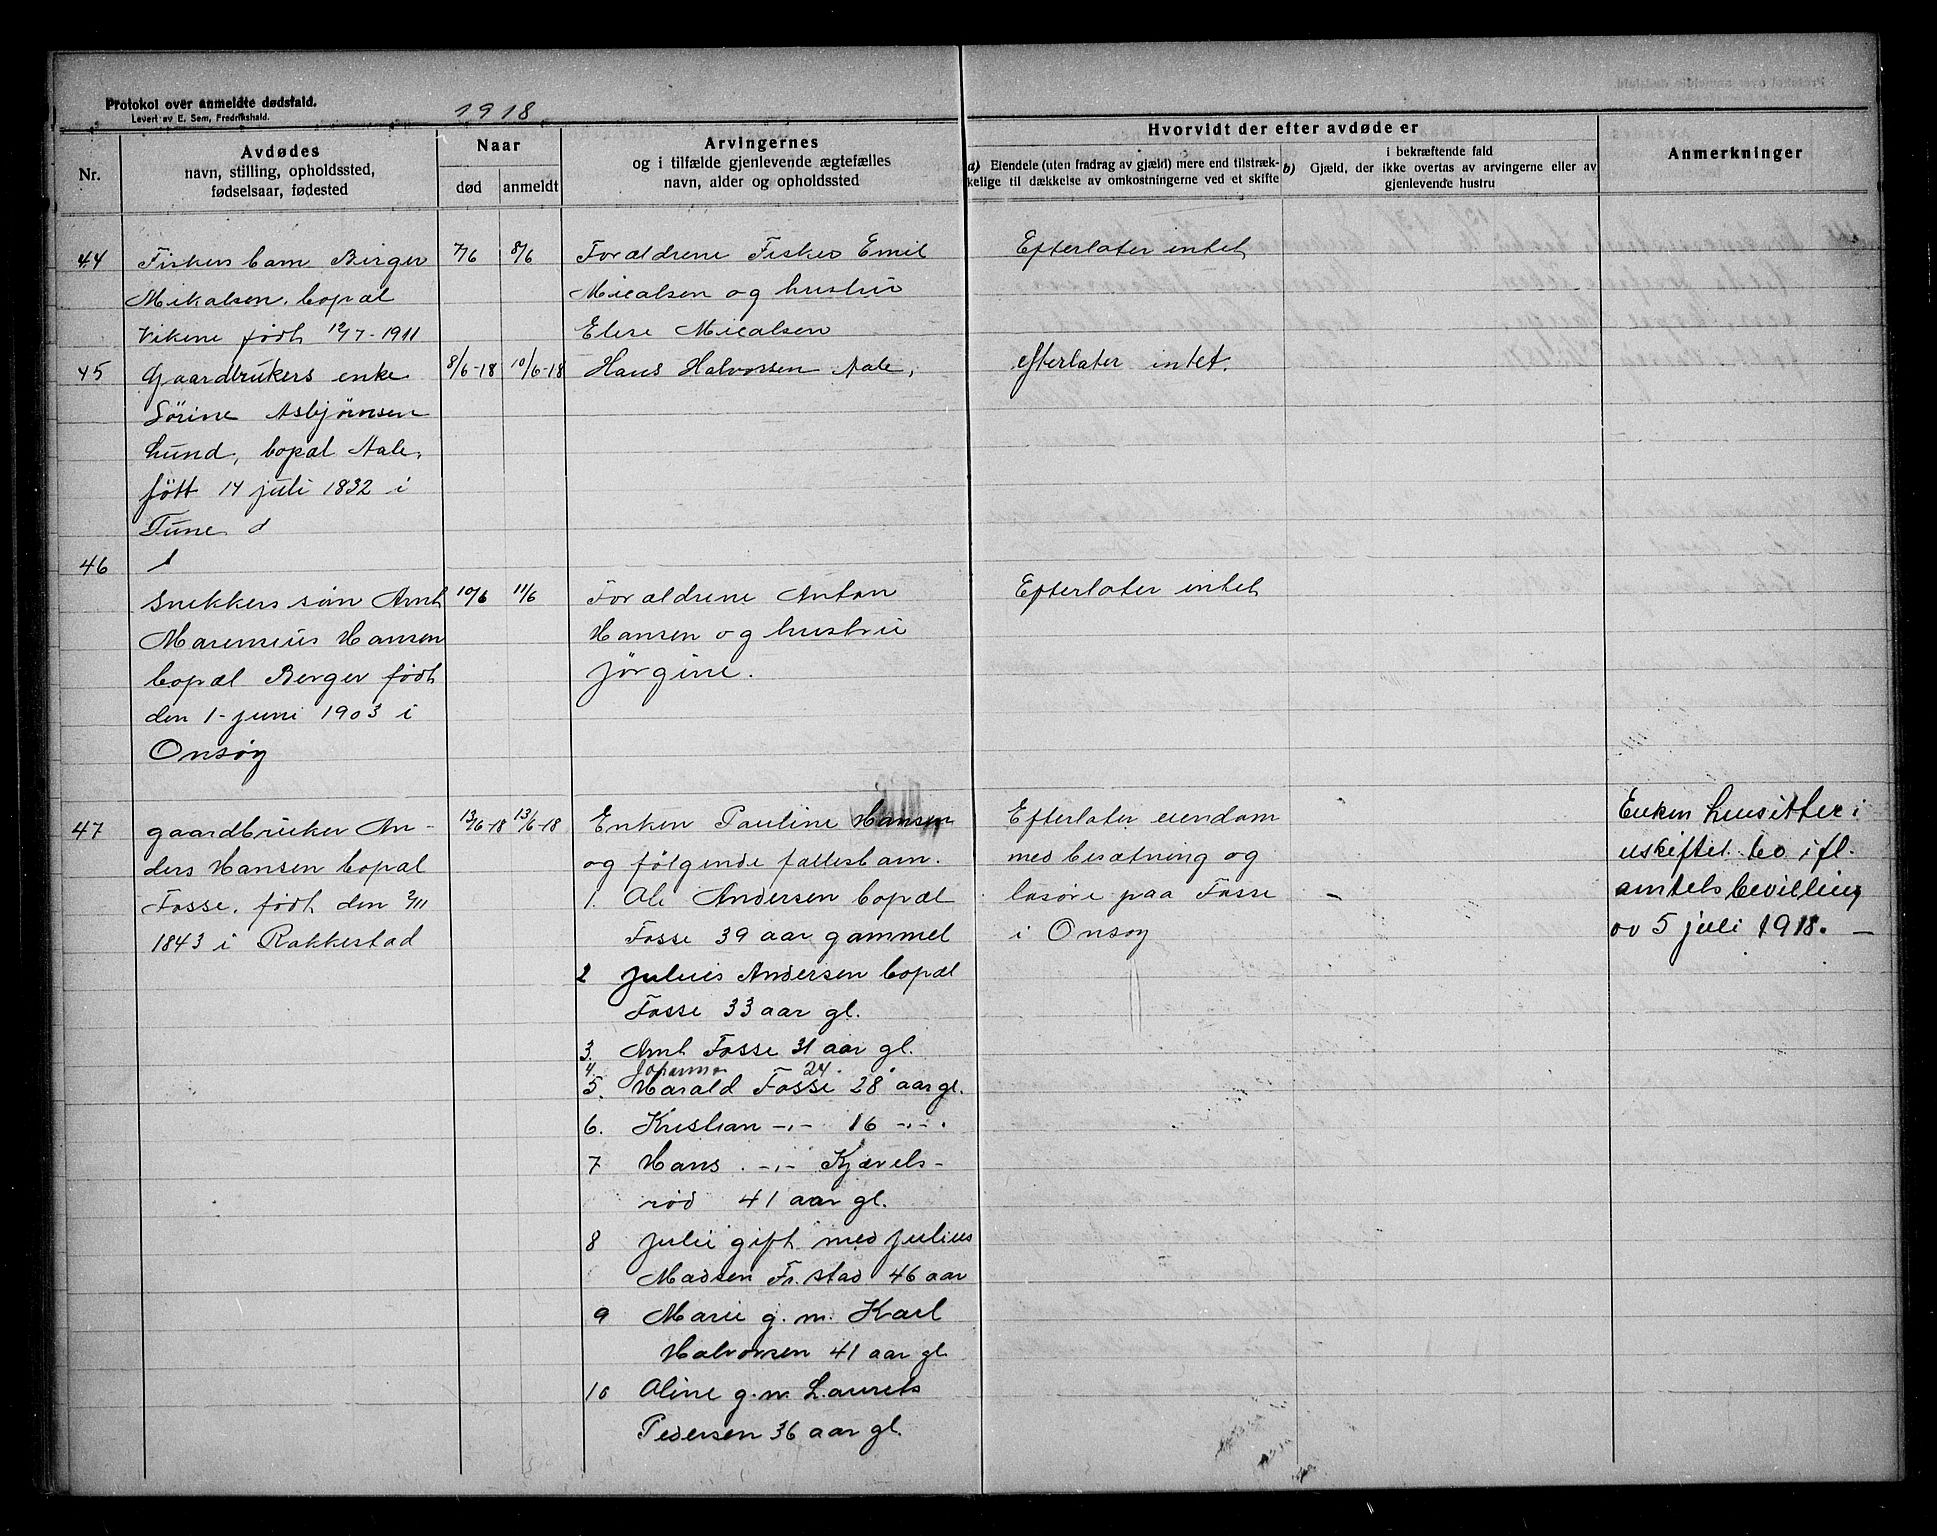 Protokol over anmeldte dødsfald.
Levert av E. Sem, Fredrikshald.
1918
Nr.
Avdødes
navn, stilling, opholdssted,
fødselsaar, fødested
Naar
død
anmeldt
Arvingernes
og i tilfælde gjenlevende ægtefælles
navn, alder og opholdssted
Hvorvidt der efter avdøde er
a) Eiendele (uten fradrag av gjæld) mere end tilstræk-
kelige til dækkelse av omkostningerne ved et skifte
b)
i bekræftende fald
Gjæld, der ikke overtas av arvingerne eller av
gjenlevende hustru
Anmerkninger
44
Fiskers barn Birger
Mikalsen, bopæl
Vikene født 12/7-1911
7/6
8/6
Forældrene Fisker Emil
Micalsen og hustru
Elise Micalsen
Efterlater intet
45
Gaardbrukers enke
Sørine Asbjørnsen
Lund, bopæl Aale,
fött 14 juli 1832 i
Tune
8/6-18
10/6-18
Hans Halvorsen Aale,
efterlater intet.
46
Snekkers søn Arnt
Marenius Hansen
bopæl Berger født
den 1-juni 1903 i
Onsøy
10/6
11/6
Forældrene Anton
Hansen og hustru
Jørgine.
Efterlater intet
47
gaardbruker An-
ders Hansen bopæl
Fosse, født den 2/11
1843 i Rakkestad
13/6-18
13/6-18
Enken Pauline Hansen
og følgende fællesbarn.
1. Ole Andersen bopæl
Fosse 39 aar gammel
2 Julius Andersen bopæl
Fosse 33 aar gl.
3. Arnt Fosse 31 aar gl.
4. Johanna 24
5. Harald Fosse 28 aar gl.
6. Kristian -"- 16 -"-
7 Hans -"- Kjævels-
rød 41 aar gl.
8 Julie gift med Julius
Madsen Fr.stad 46 aar
9 Marie g. m. Karl
Halvorsen 41 aar gl
10 Oline g. m. Laurets
Pedersen 36 aar gl.
Efterlater eiendom
med besætning og
løsøre paa Fosse
i Onsøy
-
Enken hensitter i
uskiftet bo ifl.
amtets bevilling
av 5 juli 1918. -